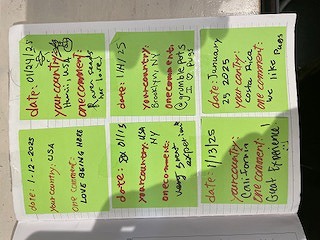 date: 1-12-2025
your country: USA
one comment:
LOVE BEING HERE
date: 01/24/25
your country:
Hawaii, USA
one comment:
sends
her love!
date: 01/13
your country: USA
NY
one comment:
very great
experience
Date: 1/14/25
your country:
Brooklyn, NY
one comment:
I ♡ pugs
date: 1/13/25
your country:
California
one comment:
Great Experience!
date: January
25 2025
your country:
Costa Rica
one comment:
we like Pugs